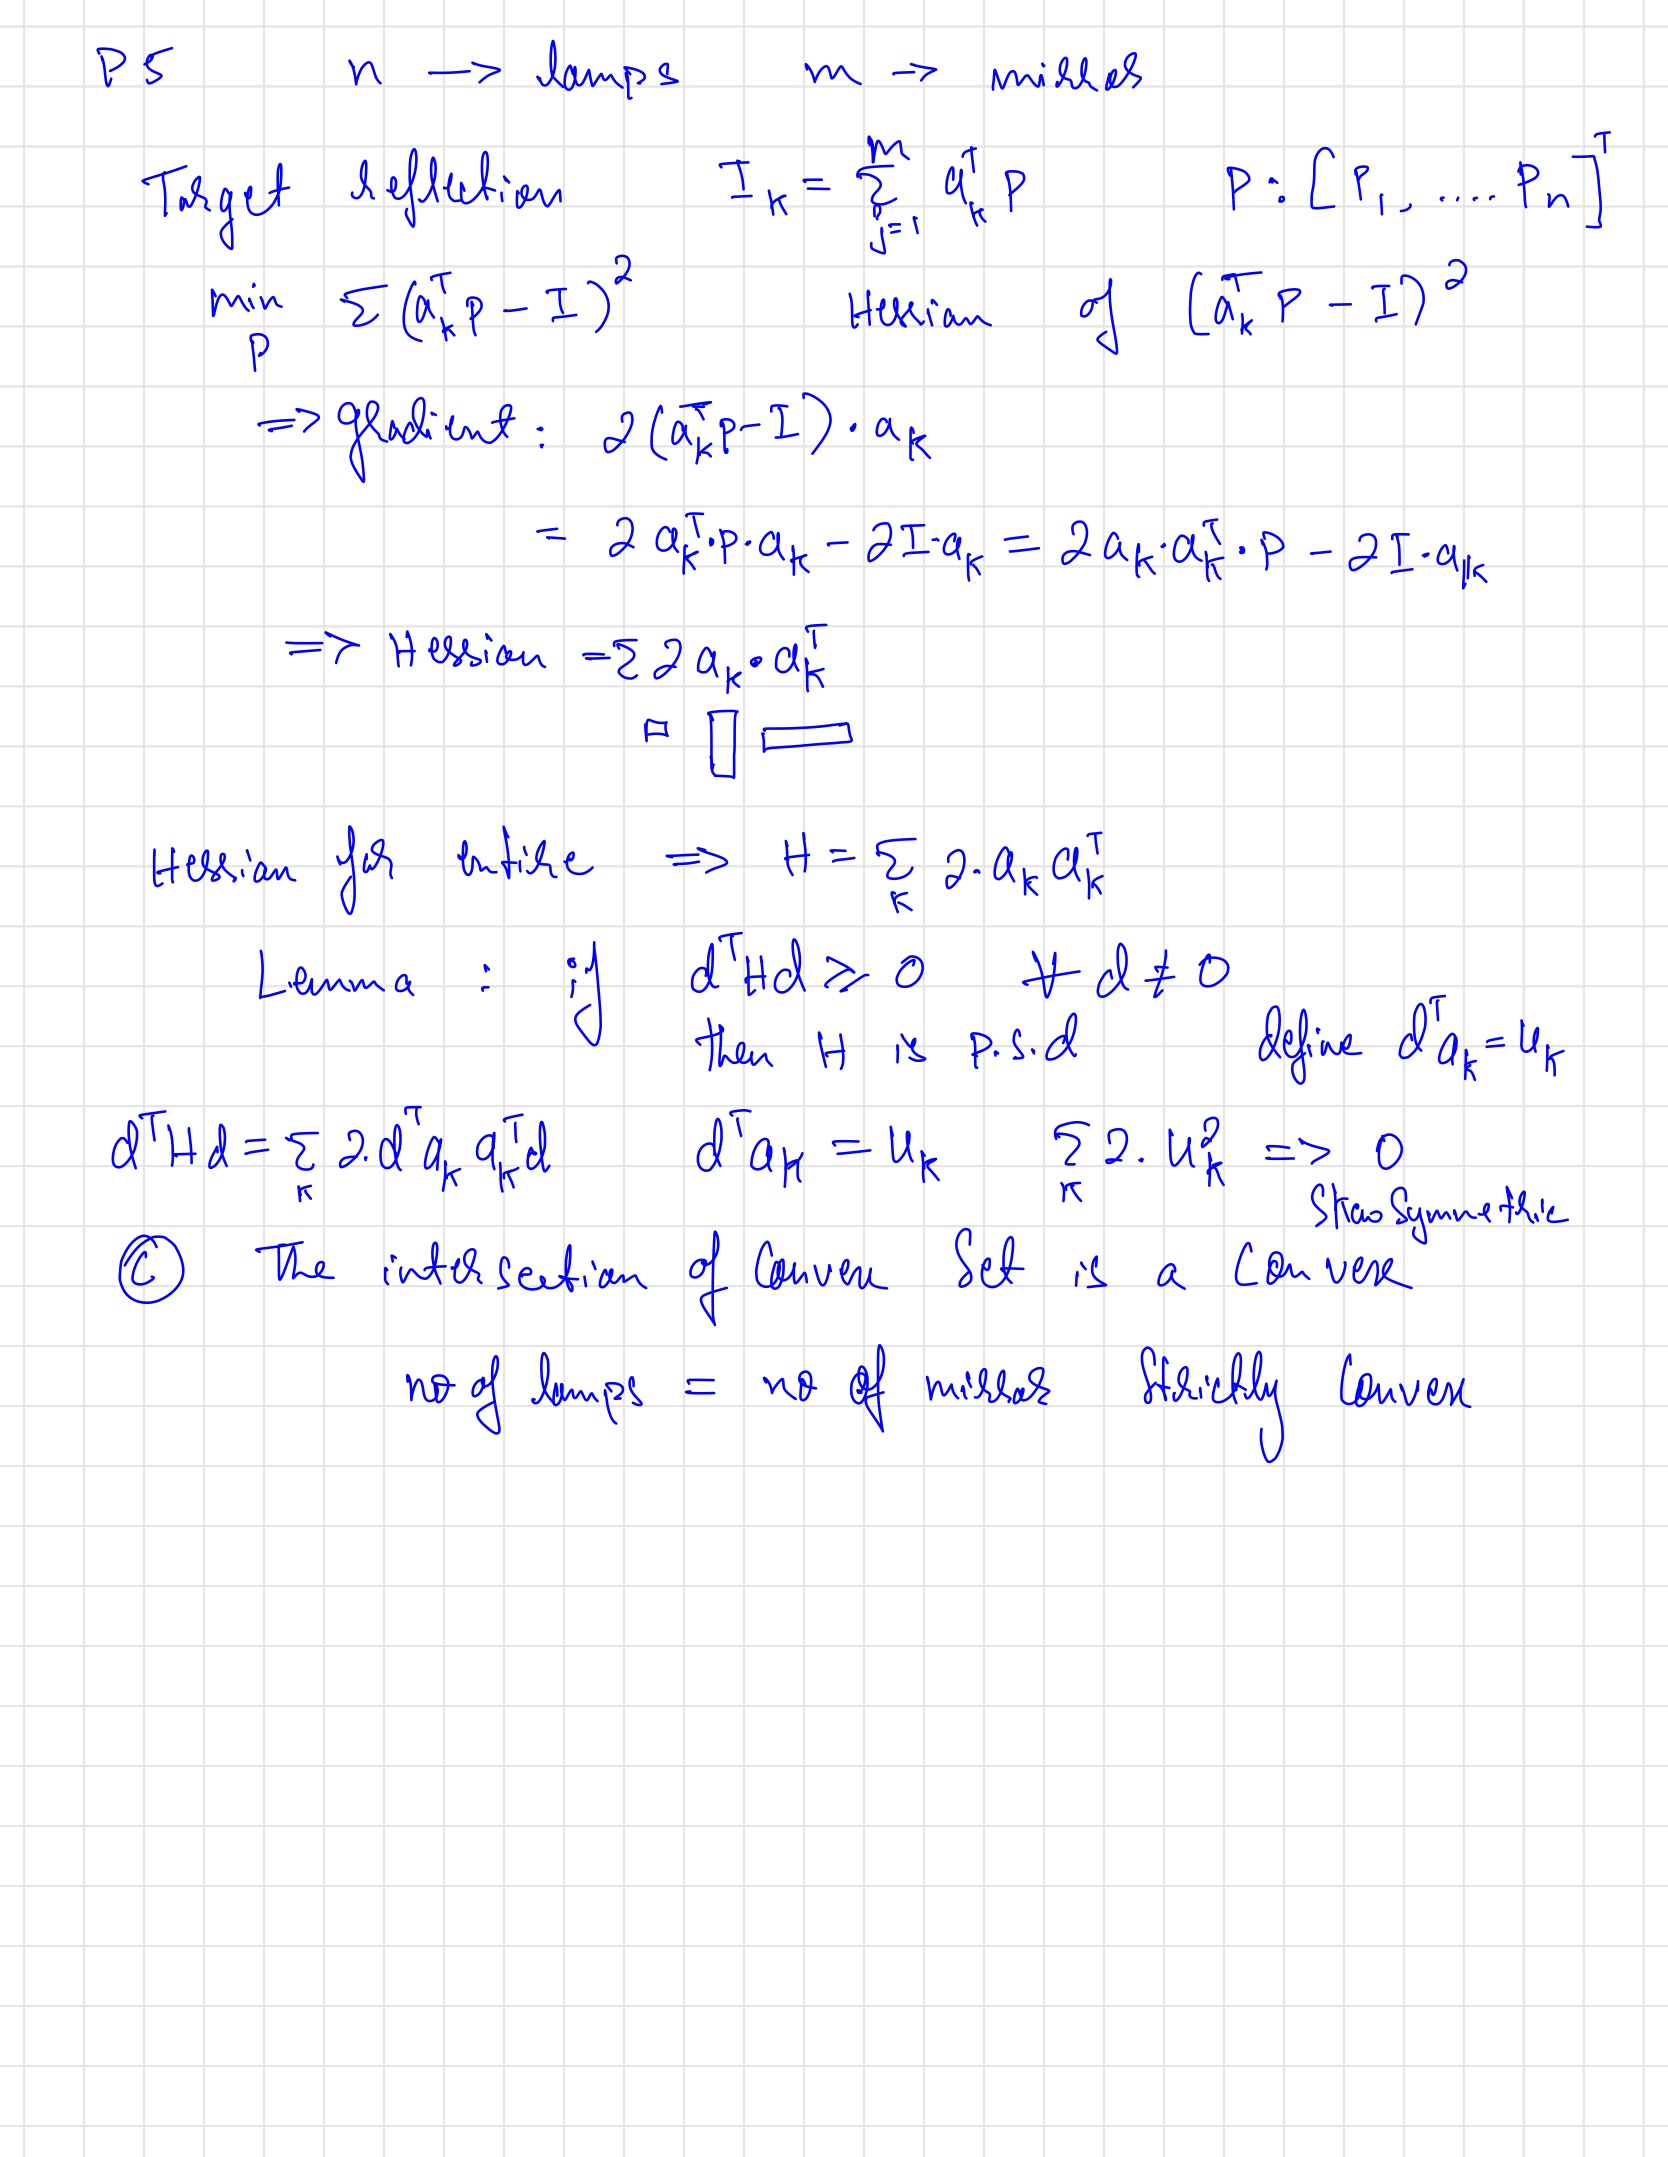 P5 n → lamps m → mirrors
Target reflection I_k = Σ_{j=1}^{m} a_k^T P P : [P_1, .... P_n]^T
min_P Σ (a_k^T P - I)^2 Hessian of (a_k^T P - I)^2
⇒ gradient : 2(a_k^T P - I) · a_k
= 2 a_k^T · P · a_k - 2I · a_k = 2 a_k · a_k^T · P - 2I · a_k
⇒ Hessian = Σ 2 a_k · a_k^T
Hessian for entire ⇒ H = Σ_k 2 · a_k a_k^T
Lemma : if d^T H d ≥ 0 ∀ d ≠ 0
then H is p.s.d define d^T a_k = u_k
d^T H d = Σ_k 2 · d^T a_k a_k^T d d^T a_k = u_k Σ_k 2 · u_k^2 => 0
Skew Symmetric
(C) The intersection of Convex Set is a Convex
no of lamps = no of mirror Strictly Convex